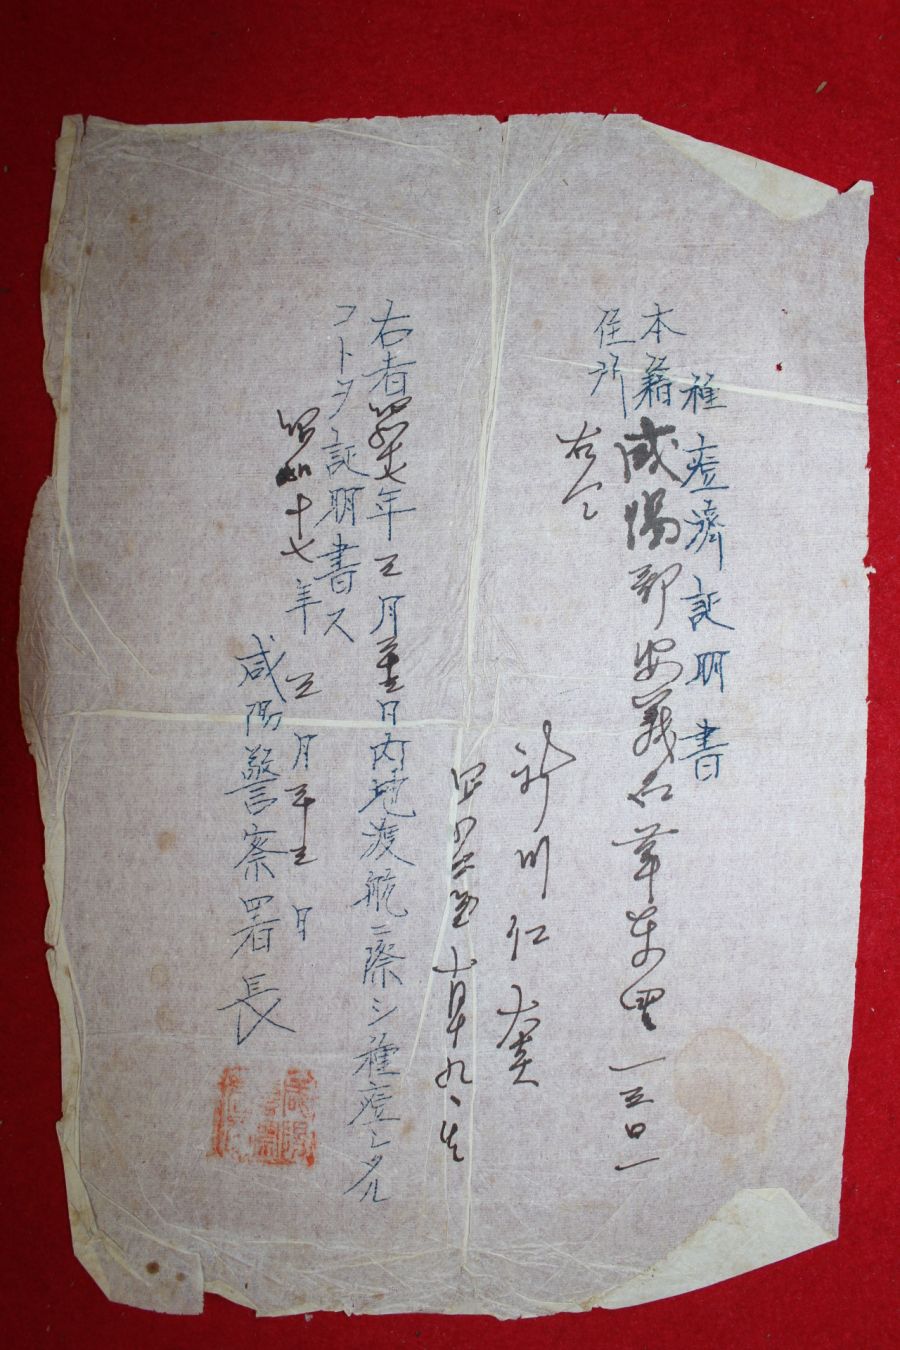 種痘濟証明書
本籍 咸陽郡安義面草東里一三〇一
住所 右仝
新川仁
十月十九日生
右者昭和十七年三月 日内地渡航ニ際シ種痘シタル
コトヲ証明書ス
昭和十七年三月 日
咸陽警察署長